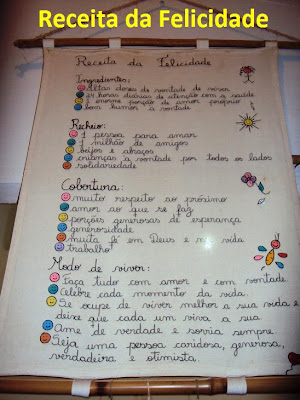 Receita da Felicidade
Receita da Felicidade
Ingredientes:
Altas doses de vontade de viver
24 horas diárias de atenção com a saúde
1 enorme porção de amor próprio
bom humor à vontade
Recheio:
1 pessoa para amar
1 milhão de amigos
beijos e abraços
crianças à vontade por todos os lados
solidariedade
Cobertura:
muito respeito ao próximo
amor ao que se faz
porções generosas de esperança
generosidade
muita fé em Deus e na vida
trabalho
Modo de viver:
Faça tudo com amor e com vontade
Celebre cada momento da vida.
Se ocupe de viver melhor a sua vida e
deixe que cada um viva a sua.
Ame de verdade e sorria sempre
Seja uma pessoa caridosa, generosa,
verdadeira e otimista.